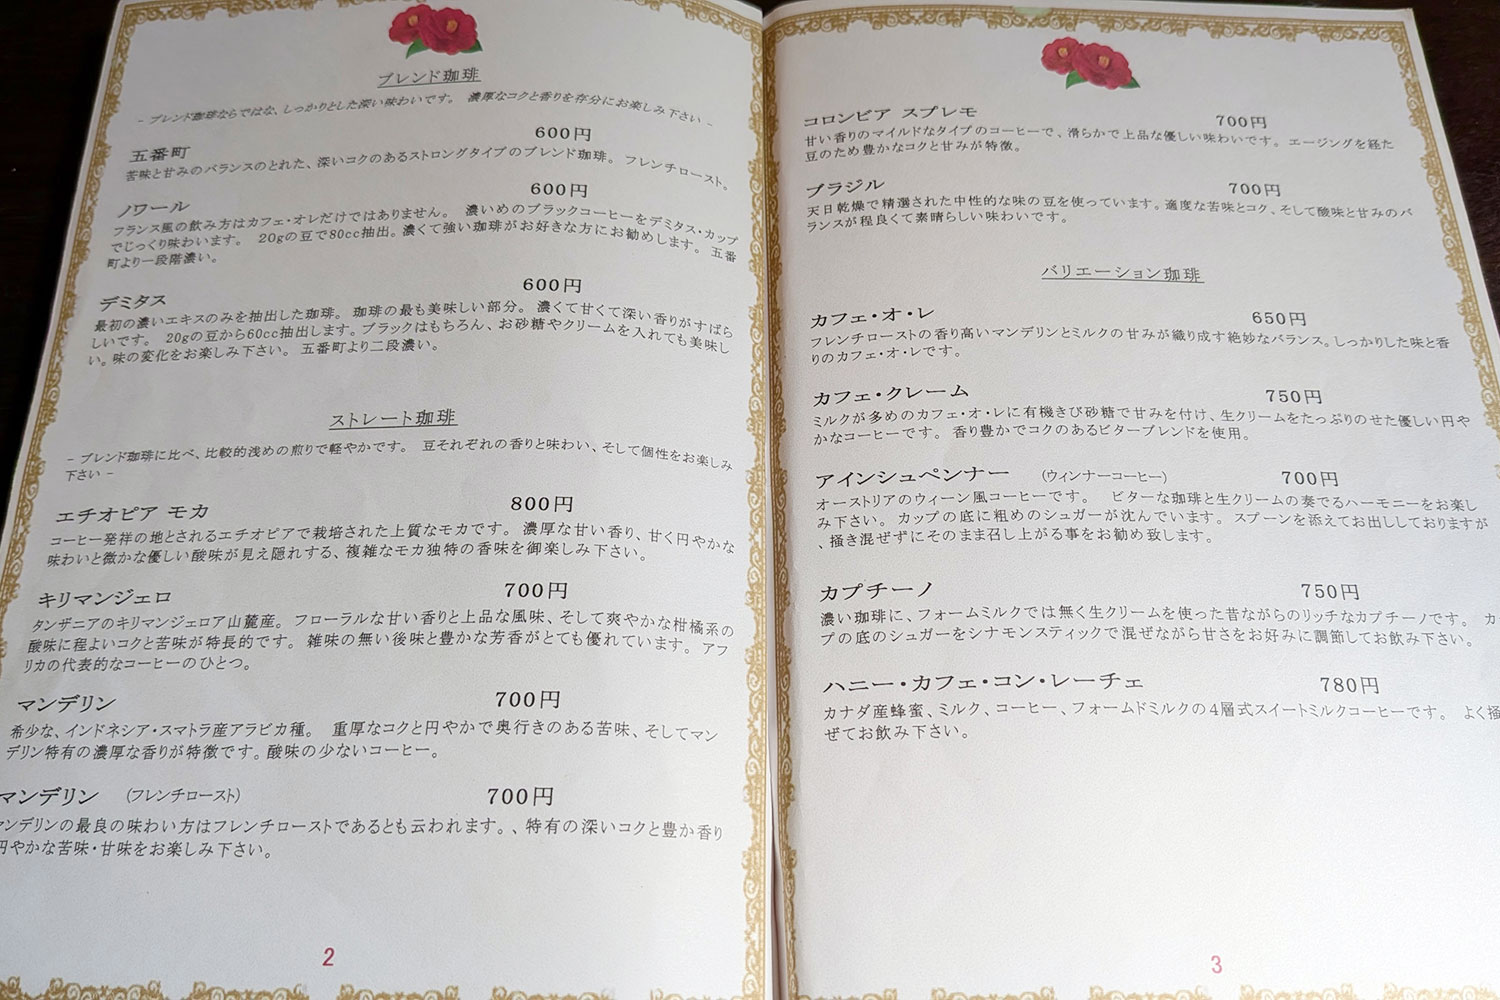 ブレンド珈琲
- ブレンド珈琲ならではな、しっかりとした深い味わいです。 濃厚なコクと香りを存分にお楽しみ下さい -
五番町 600円
苦味と甘みのバランスのとれた、深いコクのあるストロングタイプのブレンド珈琲。 フレンチロースト。
ノワール 600円
フランス風の飲み方はカフェ・オレだけではありません。 濃いめのブラックコーヒーをデミタス・カップ
でじっくり味わいます。 20gの豆で80cc抽出。濃くて強い珈琲がお好きな方にお勧めします。 五番
町より一段階濃い。
デミタス 600円
最初の濃いエキスのみを抽出した珈琲。 珈琲の最も美味しい部分。 濃くて甘くて深い香りがすばら
しいです。 20gの豆から60cc抽出します。ブラックはもちろん、お砂糖やクリームを入れても美味し
い。味の変化をお楽しみ下さい。 五番町より二段濃い。
ストレート珈琲
- ブレンド珈琲に比べ、比較的浅めの煎りで軽やかです。 豆それぞれの香りと味わい、そして個性をお楽しみ
下さい -
エチオピア モカ 800円
コーヒー発祥の地とされるエチオピアで栽培された上質なモカです。 濃厚な甘い香り、甘く円やかな
味わいと微かな優しい酸味が見え隠れする、複雑なモカ独特の香味を御楽しみ下さい。
キリマンジェロ 700円
タンザニアのキリマンジェロア山麓産。 フローラルな甘い香りと上品な風味、そして爽やかな柑橘系の
酸味に程よいコクと苦味が特長的です。 雑味の無い後味と豊かな芳香がとても優れています。 アフ
リカの代表的なコーヒーのひとつ。
マンデリン 700円
希少な、インドネシア・スマトラ産アラビカ種。 重厚なコクと円やかで奥行きのある苦味、そしてマン
デリン特有の濃厚な香りが特徴です。酸味の少ないコーヒー。
マンデリン (フレンチロースト) 700円
マンデリンの最良の味わい方はフレンチローストであるとも云われます。、特有の深いコクと豊か香り
円やかな苦味・甘味をお楽しみ下さい。
2
コロンビア スプレモ 700円
甘い香りのマイルドなタイプのコーヒーで、滑らかで上品な優しい味わいです。 エージングを経た
豆のため豊かなコクと甘みが特徴。
ブラジル 700円
天日乾燥で精選された中性的な味の豆を使っています。適度な苦味とコク、そして酸味と甘みのバ
ランスが程良くて素晴らしい味わいです。
バリエーション珈琲
カフェ・オ・レ 650円
フレンチローストの香り高いマンデリンとミルクの甘みが織り成す絶妙なバランス。しっかりした味と香
りのカフェ・オ・レです。
カフェ・クレーム 750円
ミルクが多めのカフェ・オ・レに有機きび砂糖で甘みを付け、生クリームをたっぷりのせた優しい円や
かなコーヒーです。 香り豊かでコクのあるビターブレンドを使用。
アインシュペンナー (ウィンナーコーヒー) 700円
オーストリアのウィーン風コーヒーです。 ビターな珈琲と生クリームの奏でるハーモニーをお楽し
み下さい。 カップの底に粗めのシュガーが沈んでいます。 スプーンを添えてお出ししておりますが
、掻き混ぜずにそのまま召し上がる事をお勧め致します。
カプチーノ 750円
濃い珈琲に、フォームミルクでは無く生クリームを使った昔ながらのリッチなカプチーノです。 カ
プの底のシュガーをシナモンスティックで混ぜながら甘さをお好みに調節してお飲み下さい。
ハニー・カフェ・コン・レーチェ 780円
カナダ産蜂蜜、ミルク、コーヒー、フォームドミルクの4層式スイートミルクコーヒーです。 よく掻
ぜてお飲み下さい。
3